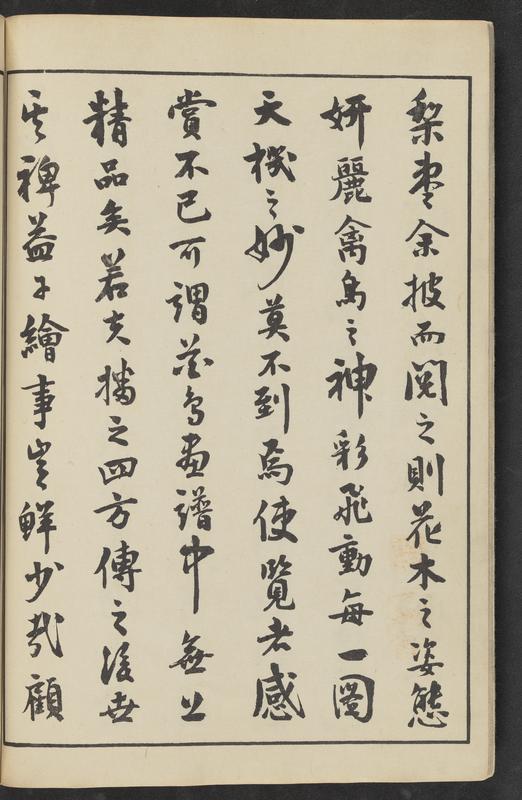 梨棗余披而閱之則花木之姿態
妍麗禽鳥之神彩飛動每一圖
天機之妙莫不到焉使覽者感
賞不已可謂花鳥畫譜中無上
精品矣若夫播之四方傳之後世
其裨益于繪事豈鮮少哉顧